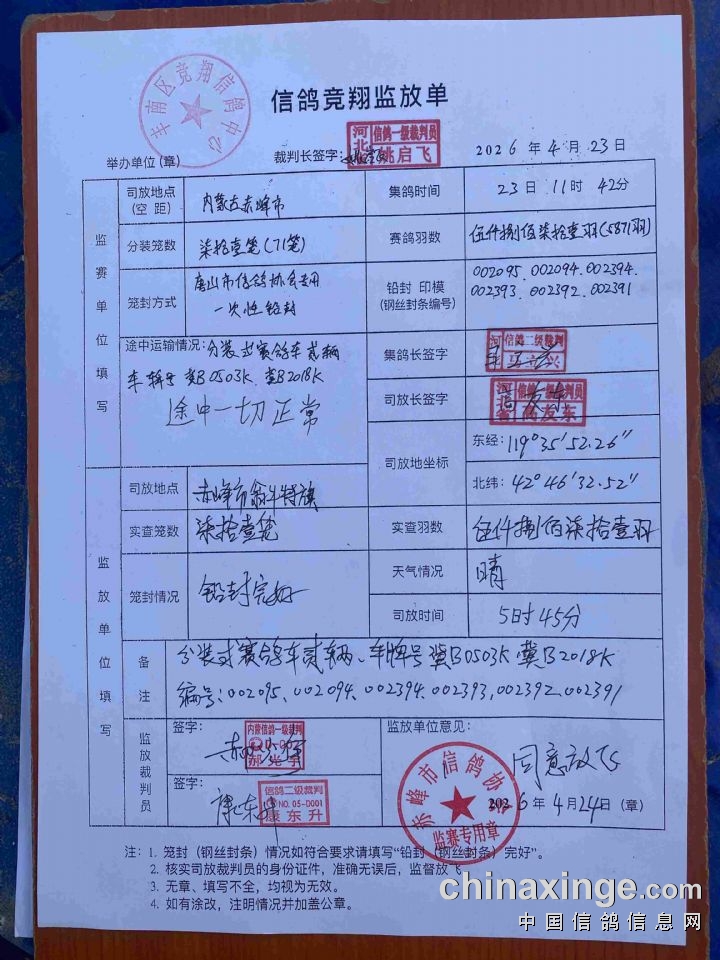 信鸽竞翔监放单
丰南区竞翔信鸽中心
举办单位(章)
裁判长签字:
河北 信鸽一级裁判员
姚启飞
2026 年 4 月 23 日
监赛单位填写
司放地点
(空 距)
内蒙古赤峰市
集鸽时间
23 日 11时 42分
分装笼数
柒拾壹笼(71笼)
赛鸽羽数
伍仟捌佰柒拾壹羽(5871羽)
笼封方式
唐山市信鸽协会专用
一次性铅封
铅封 印模
(钢丝封条编号)
002095.002094.002394.
002393.002392.002391
途中运输情况: 分装式赛鸽车贰辆
车牌号 冀B0503K.冀B2018K
途中一切正常
集鸽长签字
信鸽二级裁判
司放长签字
信鸽一级裁判员
司放地坐标
东经: 119°35′52.26″
北纬: 42°46′32.52″
监放单位填写
司放地点
赤峰市翁牛特旗
实查笼数
柒拾壹笼
实查羽数
伍仟捌佰柒拾壹羽
笼封情况
铅封完好
天气情况
晴
司放时间
5时45分
备注
分装式赛鸽车贰辆、车牌号冀B0503K 冀B2018K
编号:002095、002094、002394、002393,002392、002391
监放裁判员
签字:
内蒙信鸽一级裁判
郝光宇
签字:
康东升
信鸽二级裁判
NO.05-D001
康东升
监放单位意见:
同意放飞
赤峰市信鸽协会
监赛专用章
2026 年 4 月 24 日 (章)
注: 1. 笼封(钢丝封条)情况如符合要求请填写“铅封(钢丝封条)完好”。
2. 核实司放裁判员的身份证件,准确无误后,监督放飞。
3. 无章、填写不全,均视为无效。
4. 如有涂改,注明情况并加盖公章。
chinaxinge.com
中国信鸽信息网